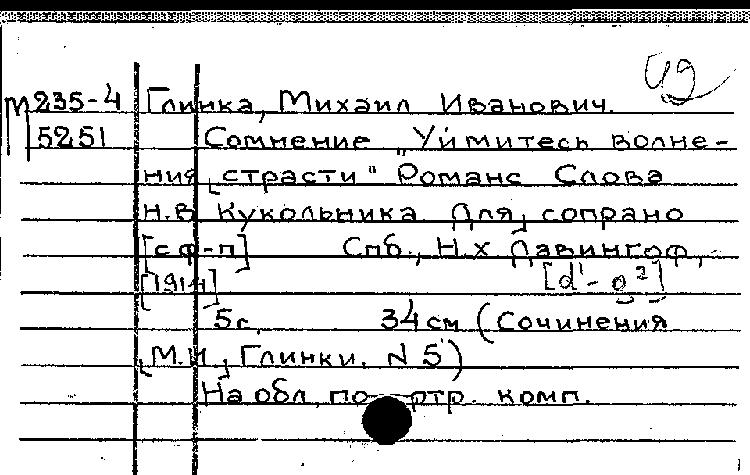 42
М 235-4 Глинка, Михаил Иванович.
5251 Сомнение „Уймитесь волне-
ния страсти" Романс Слова
Н.В. Кукольника. Для сопрано
[с ф-п] Спб., Н.Х Давингоф,
[1914] [d¹-g²]
5 с. 34 см (Сочинения
М.И. Глинки. N 5)
На обл. портр. комп.